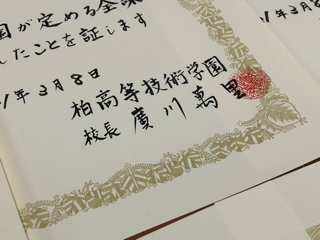 園が定める全課
したことを証します
年3月8日
柏高等技術学園
校長 廣川萬里
年3月8